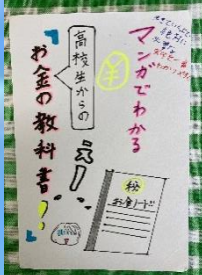 マンガでわかる
高校生からの
『お金の教科書!』
え!
㊙
お金ノート